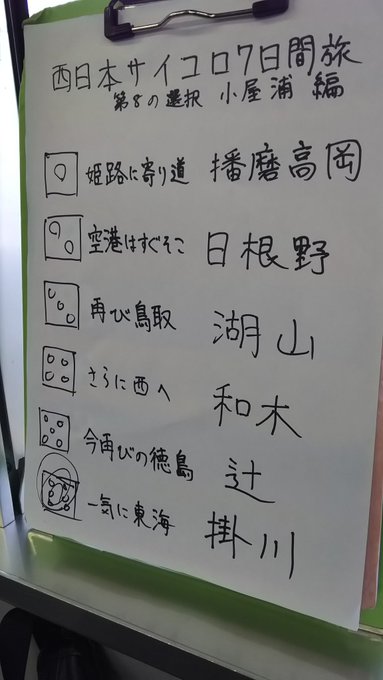 西日本サイコロ7日間旅
第8の選択 小屋浦 編
姫路に寄り道 播磨高岡
空港はすぐそこ 日根野
再び鳥取 湖山
さらに西へ 和木
今再びの徳島 辻
一気に東海 掛川